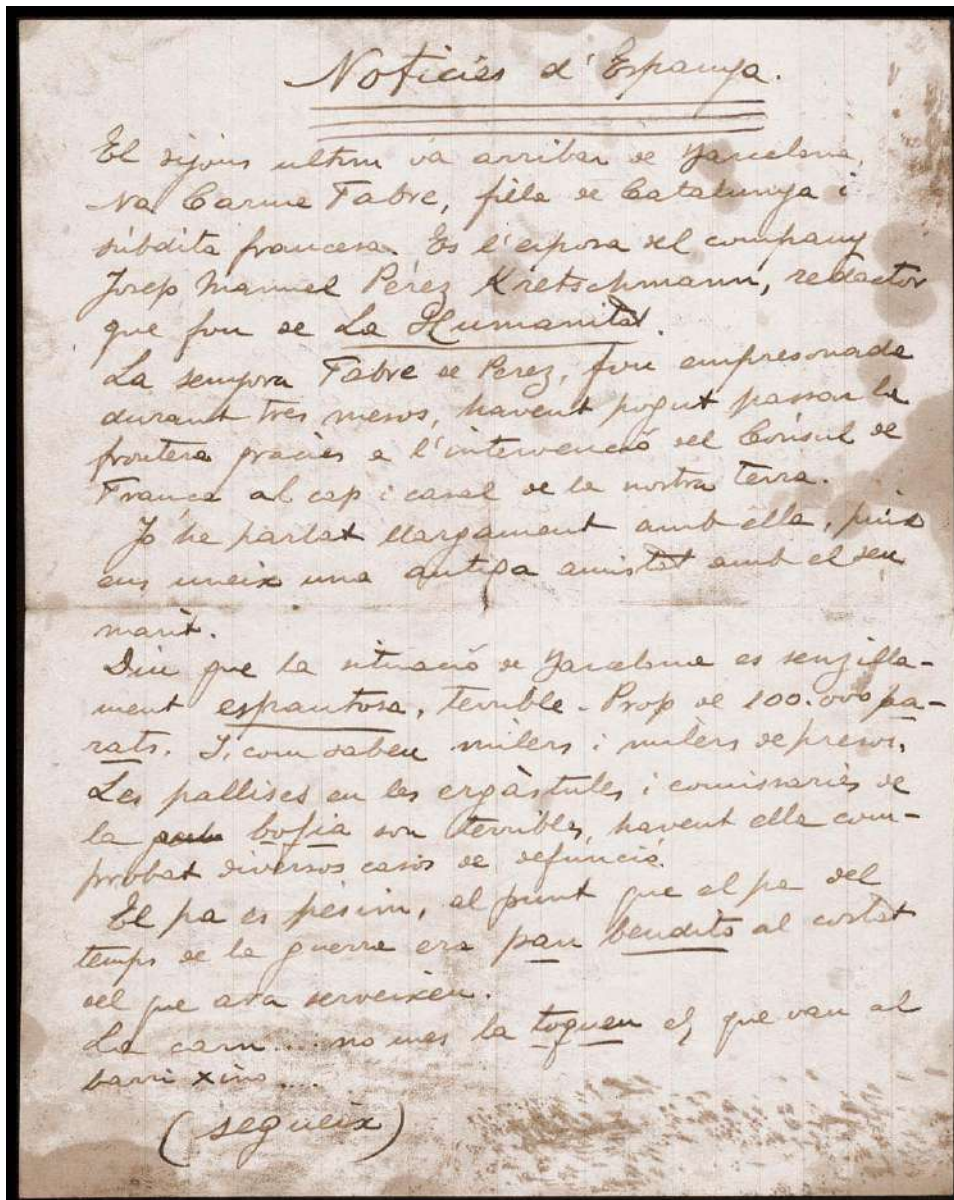 Noticies d'Espanya.
El dijous ultim va arribar de Barcelona,
Na Carme Fabre, filla de Catalunya i
súbdita francesa. Es l'esposa del company
Josep Manuel Pérez Kretschmann, redactor
que fou de La Humanitat.
La senyora Fabre de Pérez, fou empresonada
durant tres mesos, havent pogut passar la
frontera gràcies a l'intervenció del Cónsul de
França al cap i casal de la nostra terra.
Jo he parlat llargament amb ella, puix
ens uneix una antiga amistat amb el seu
marit.
Diu que la situació de Barcelona es senzilla-
ment espantosa, terrible. Prop de 100.000 pa-
rats. I, com sabeu milers i milers de presos.
Les pallises en les ergàstules i comissaries de
la bofia son terribles, havent ella com-
probat diversos casos de defunció.
El pa es pèsim, al punt que el pa del
temps de la guerra era pan bendito al costat
del que ara serveixen.
La carn... no mes la toquen els que van al
barri xino....
(segueix)